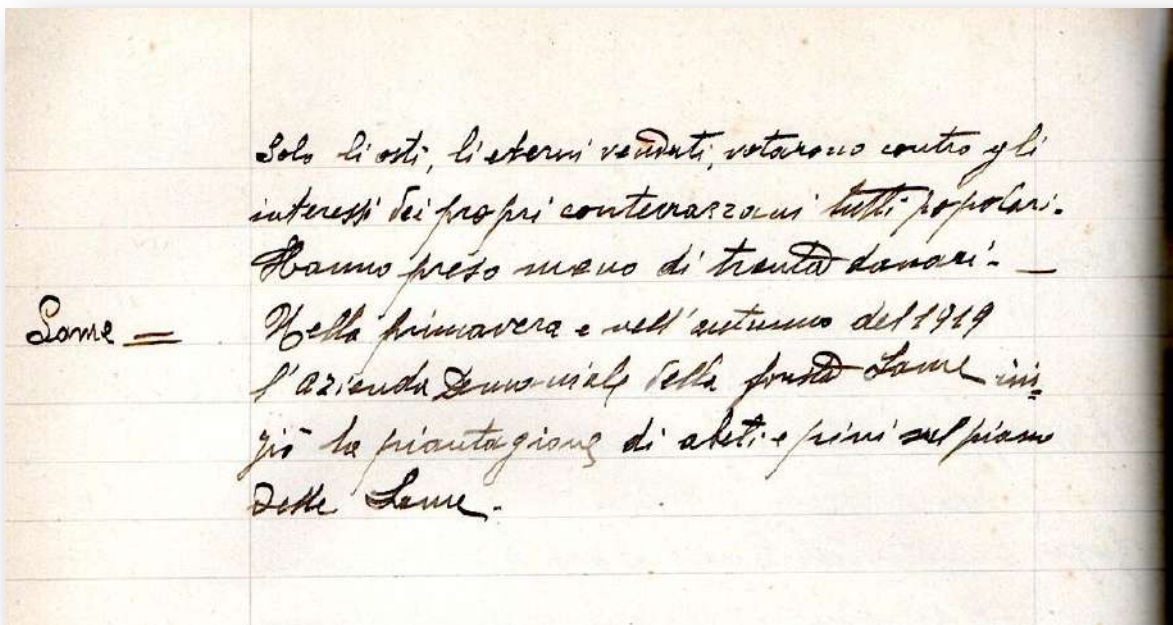 Solo li osti, li eterni venduti, votarono contro gli
interessi dei propri conterrazzani tutti popolari.
Hanno preso meno di trenta danari. —
Lame = Nella primavera e nell'autunno del 1919
l'azienda Demaniale della foresta Lame ini=
ziò la piantagione di abeti e pini sul piano
delle Lame.